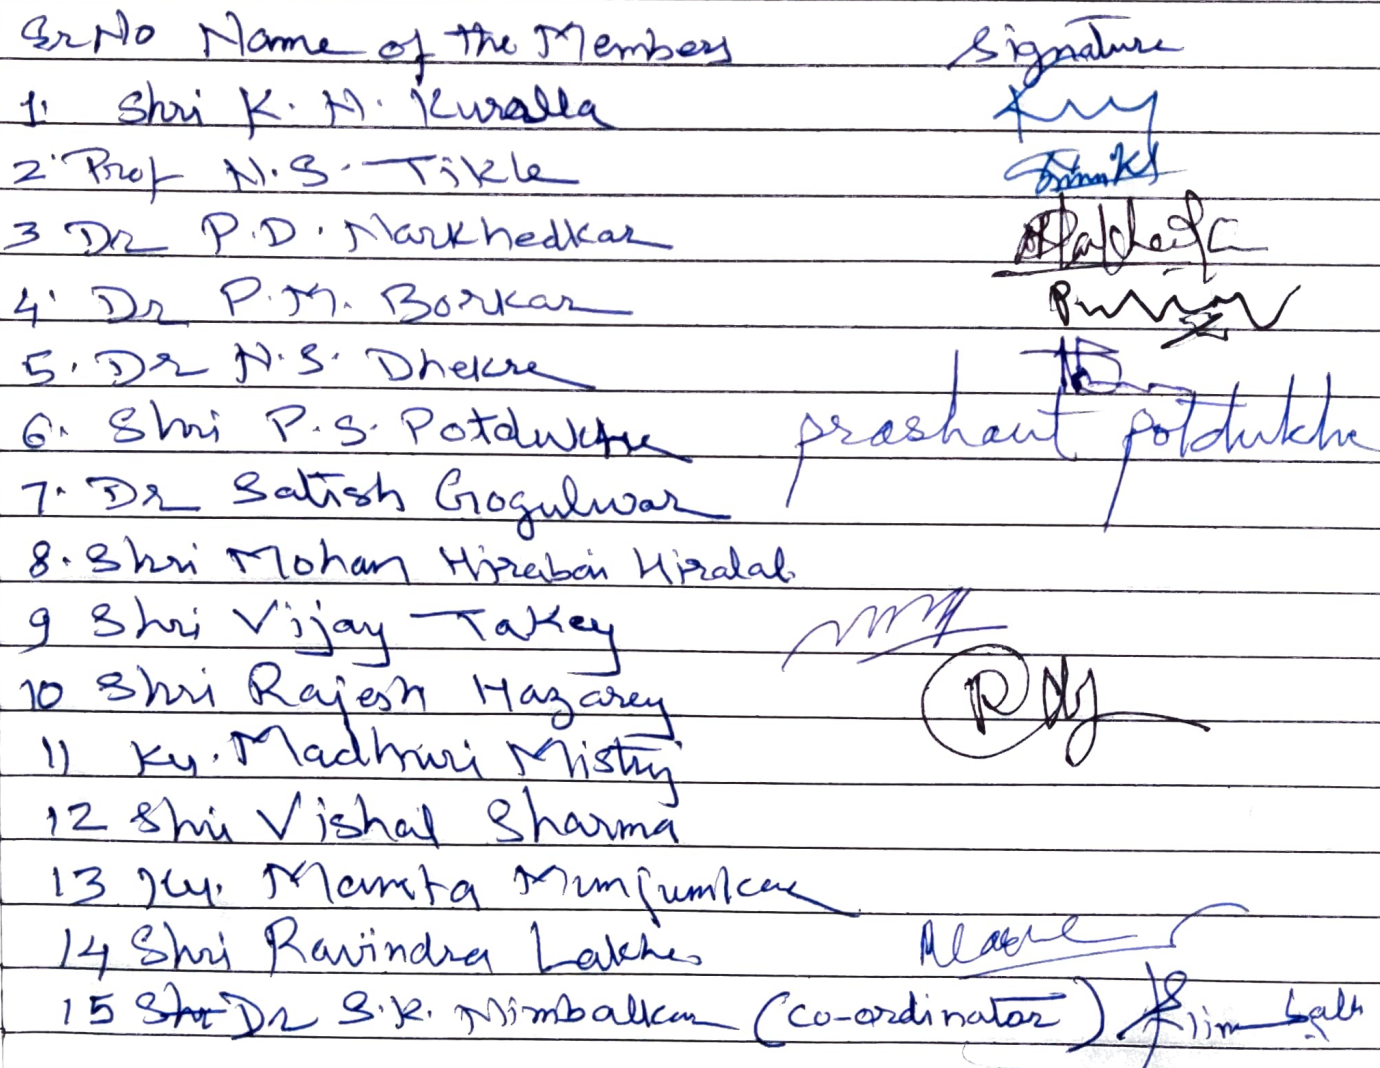 Sr No Name of the Members Signature
1. Shri K. N. Kuralla
2. Prof N.S. Tikle
3 Dr P.D. Narkhedkar
4. Dr P.M. Borkar
5. Dr N.S. Dhekre
6. Shri P.S. Potdukhe prashant potdukhe
7. Dr Satish Gogulwar
8. Shri Mohan Hirabai Hiralal
9 Shri Vijay Takey
10 Shri Rajesh Hazarey
11 Ku. Madhuri Mistry
12 Shri Vishal Sharma
13 Ku. Mamta
14 Shri Ravindra Lakhe
15 Dr S.K. Nimbalkar (co-ordinator)